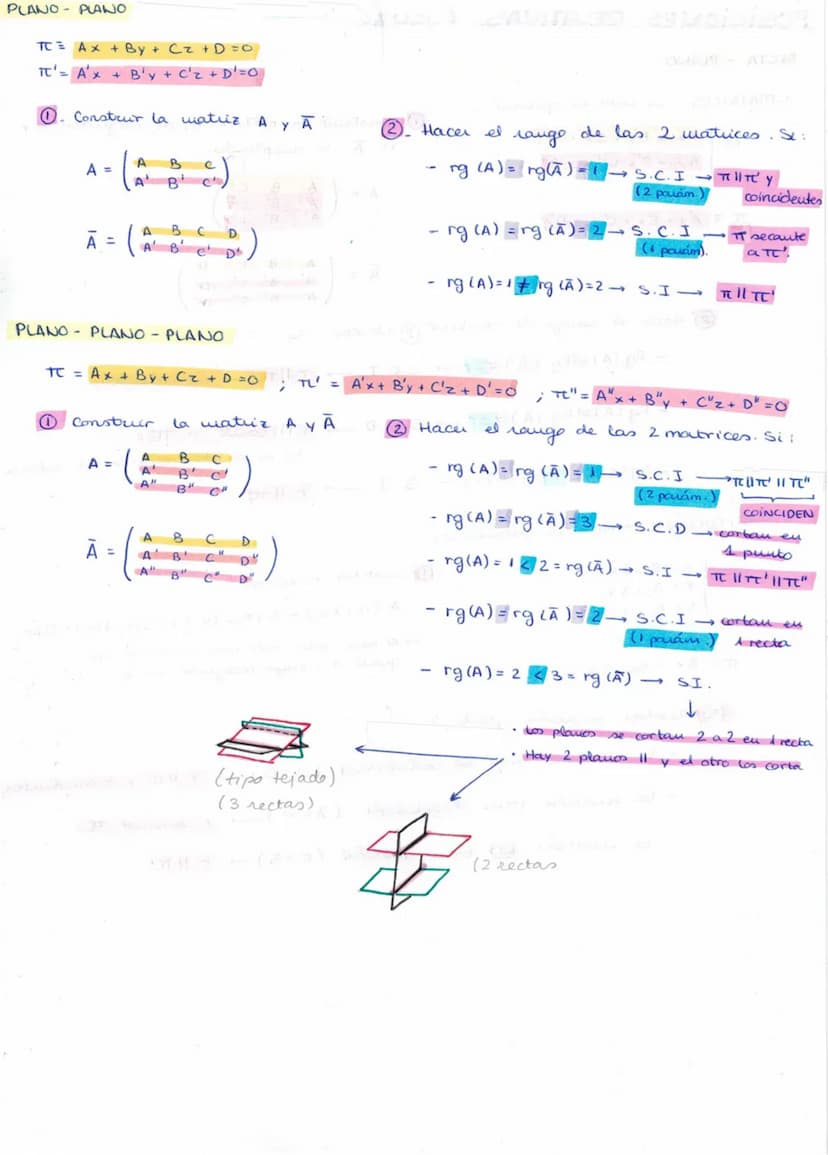 PLANO - PLANO
π ≡ Ax + By + Cz + D = 0
π' = A'x + B'y + C'z + D' = 0
①. Construir la matriz A y Ā
A = ( A B C
A' B' C' )
Ā = ( A B C D
A' B' C' D' )
②. Hacer el rango de las 2 matrices. Si:
- rg (A) = rg(Ā) = 1 → S.C.I → π || π' y
(2 parám.) coincidentes
- rg (A) = rg (Ā) = 2 → S.C.I → π secante
(1 parám). a π'.
- rg (A) = 1 ≠ rg (Ā) = 2 → S.I → π || π'
PLANO - PLANO - PLANO
π = Ax + By + Cz + D = 0 ; π' = A'x + B'y + C'z + D' = 0 ; π" = A"x + B"y + C"z + D" = 0
① Construir la matriz A y Ā
A = ( A B C
A' B' C'
A" B" C" )
Ā = ( A B C D
A' B' C" D"
A" B" C" D" )
② Hacer el rango de las 2 matrices. Si:
- rg (A) = rg (Ā) = 1 → S.C.I → π || π' || π"
(2 parám.) COINCIDEN
- rg (A) = rg (Ā) = 3 → S.C.D → cortan en
1 punto
- rg(A) = 1 < 2 = rg (Ā) → S.I → π || π' || π"
- rg(A) = rg (Ā) = 2 → S.C.I → cortan en
(1 parám.) 1 recta
- rg (A) = 2 < 3 = rg (Ā) → SI.
↓
· Los planos se cortan 2 a 2 en 1 recta
· Hay 2 planos || y el otro los corta
(tipo tejado)
(3 rectas)
(2 rectas